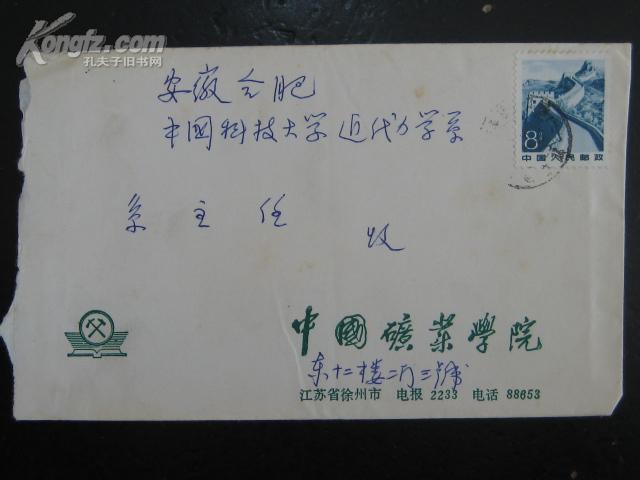 Kongfz.com
孔夫子旧书网
安徽合肥
中国科技大学近代力学系
系 主 任 收
8分
中国人民邮政
中國礦業學院
东十二楼二门三号
江苏省徐州市 电报 2233 电话 88653